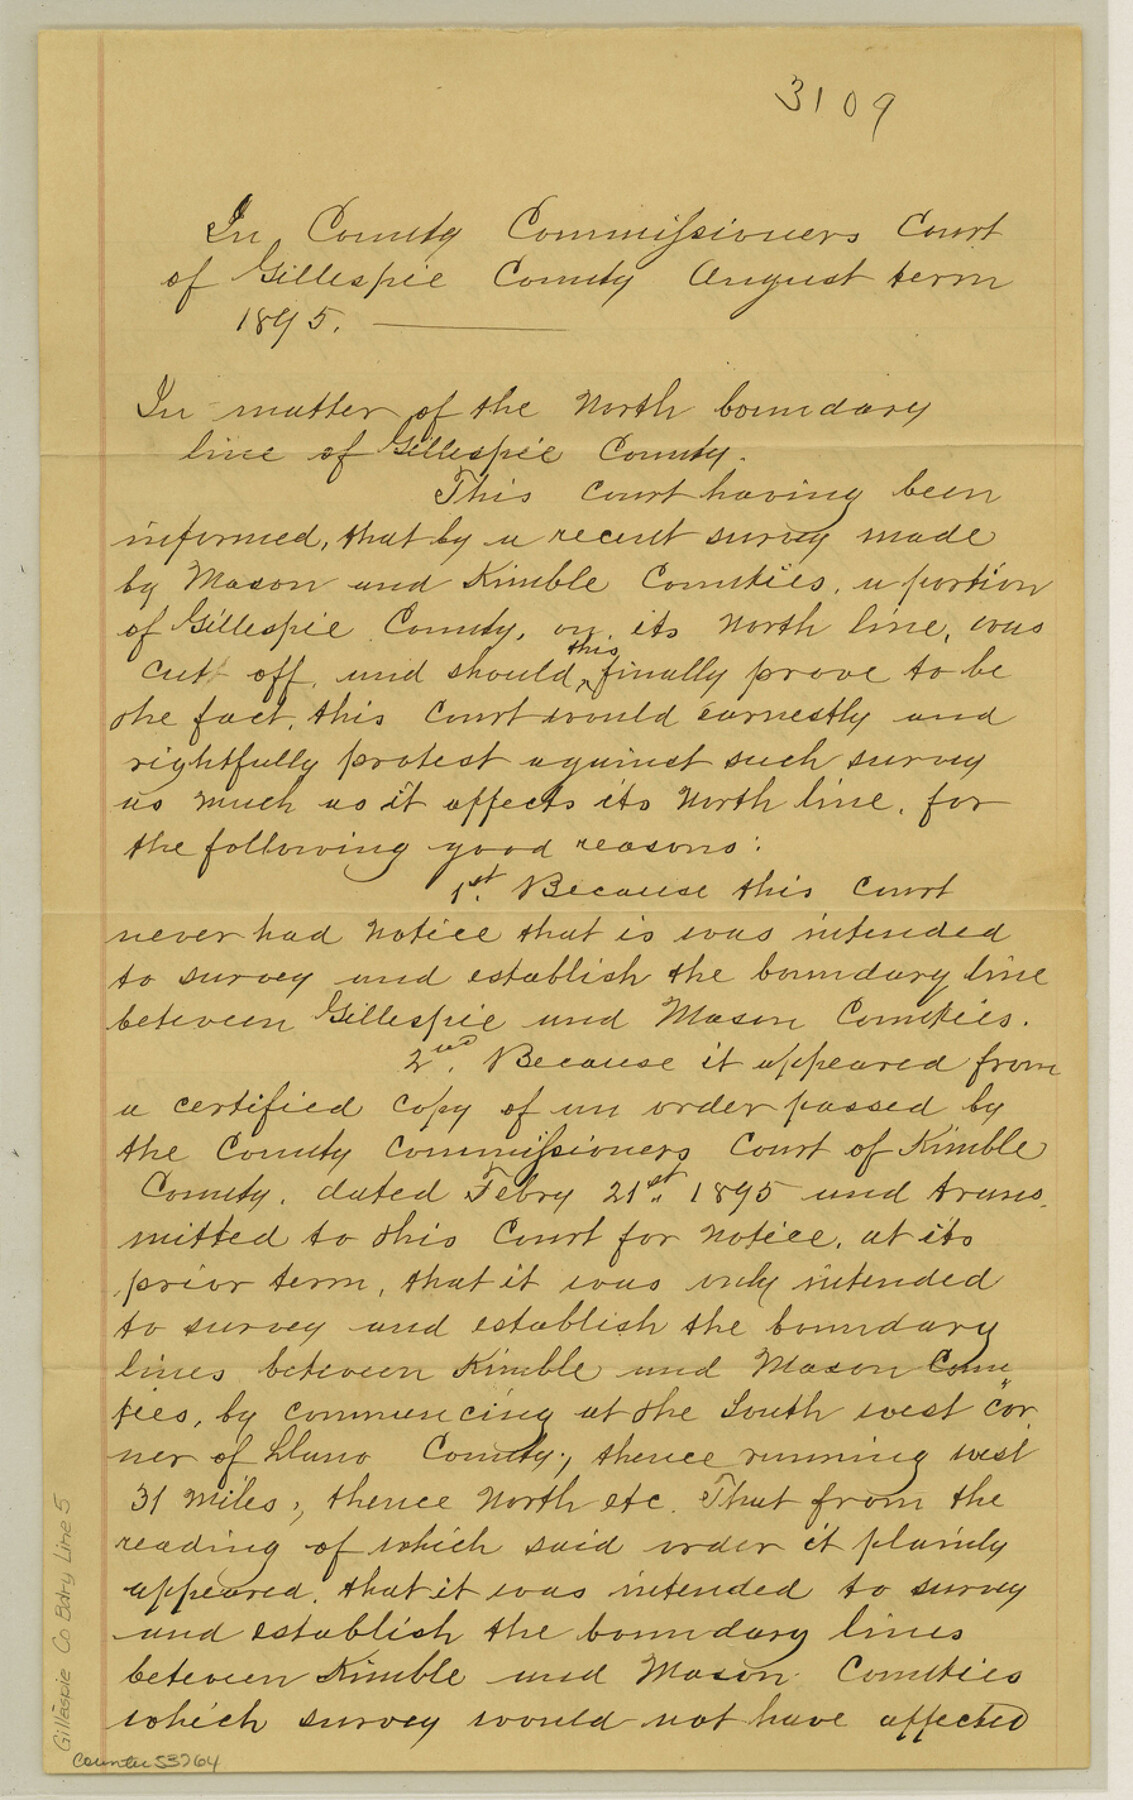 3109
In County Commissioners Court
of Gillespie County August term
1895.
In matter of the North boundary
line of Gillespie County.
This Court having been
informed, that by a recent survey made
by Mason and Kimble Counties, a portion
of Gillespie County, on its North line, was
cutt off, and should this finally prove to be
the fact, this Court would earnestly and
rightfully protest against such survey
as much as it affects its North line, for
the following good reasons:
1st. Because this Court
never had notice that is was intended
to survey and establish the boundary line
between Gillespie and Mason Counties.
2nd. Because it appeared from
a certified copy of an order passed by
the County Commissioners Court of Kimble
County, dated Febry 21st. 1895 and trans-
mitted to this Court for notice, at its
prior term, that it was only intended
to survey and establish the boundary
lines between Kimble and Mason Coun"
ties, by commencing at the South west Cor-
ner of Llano County; thence running west
31 miles; thence North etc. That from the
reading of which said order it plainly
appeared, that it was intended to survey
and establish the boundary lines
between Kimble and Mason Counties
which survey would not have affected
Gillespie Co Bdry Line 5
Counter 53764